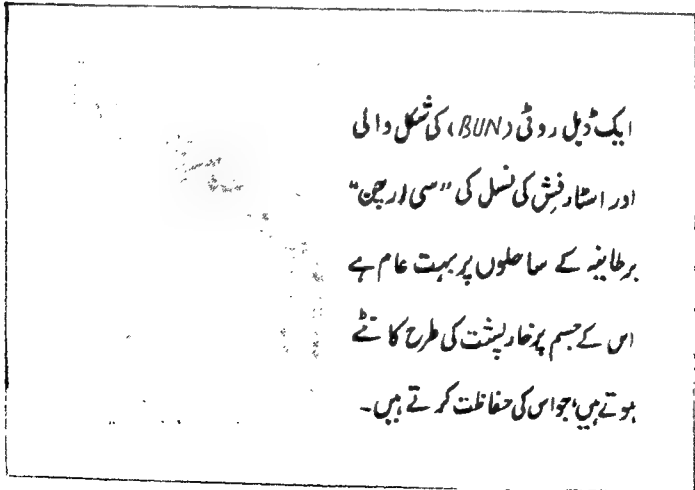 ایک ڈبل روٹی (BUN) کی شکل والی
اور اسٹار فِش کی نسل کی "سی اورچن"
برطانیہ کے ساحلوں پر بہت عام ہے
اس کے جسم پر خارپشت کی طرح کانٹے
ہوتے ہیں، جو اس کی حفاظت کرتے ہیں۔